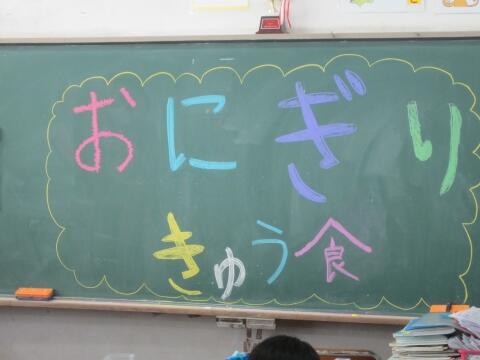 おにぎり
きゅう食